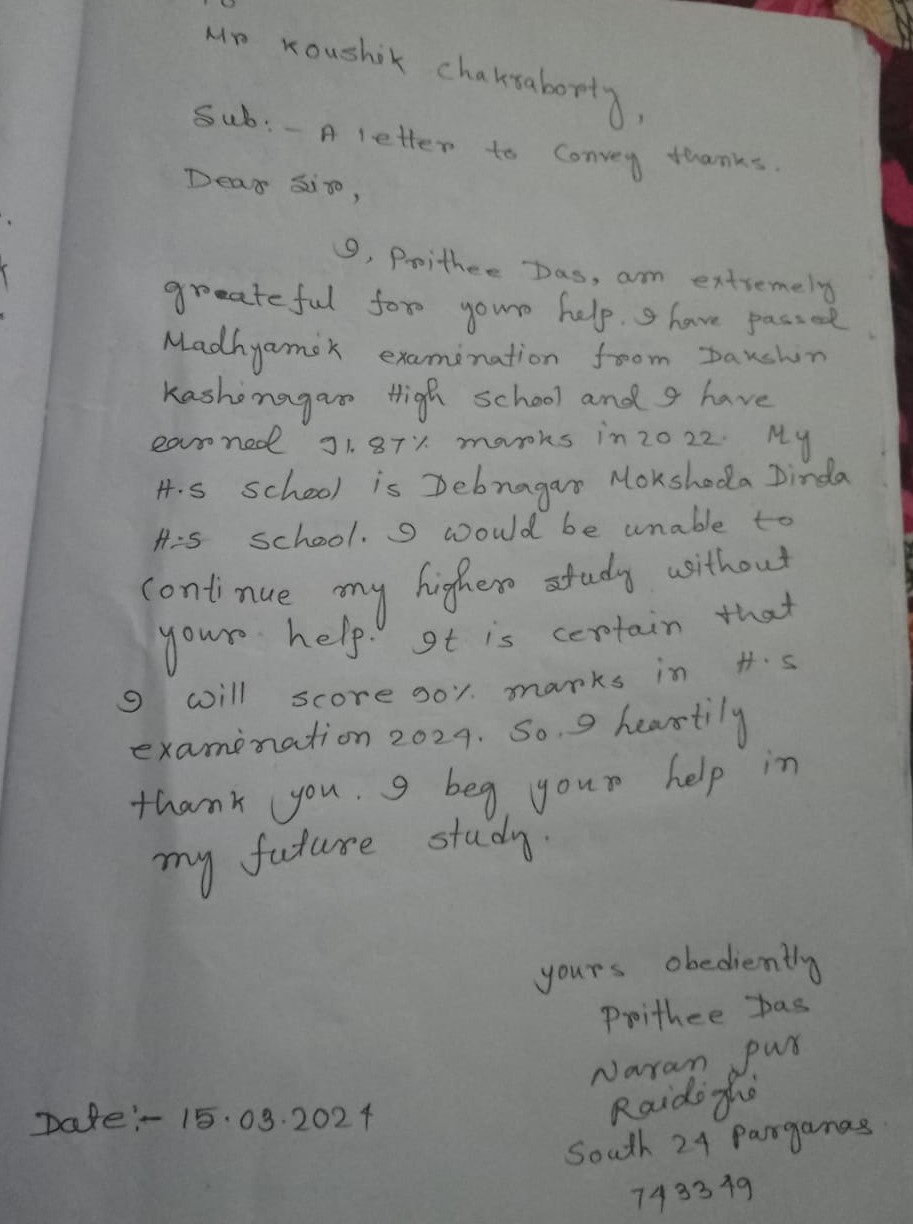 To
Mr Koushik Chakraborty,
Sub:- A letter to Convey thanks.
Dear Sir,
I, Prithee Das, am extremely
greateful for your help. I have passed
Madhyamik examination from Dakshin
Kashinagar High school and I have
earned 91.87% marks in 2022. My
H.S school is Debnagar Mokshoda Dinda
H.S school. I would be unable to
continue my higher study without
your help. It is certain that
I will score 90% marks in H.S
examination 2024. So, I heartily
thank you. I beg your help in
my future study.
yours obediently
Prithee Das
Naran pur
Raidighi
South 24 Parganas
743349
Date:- 15.03.2024